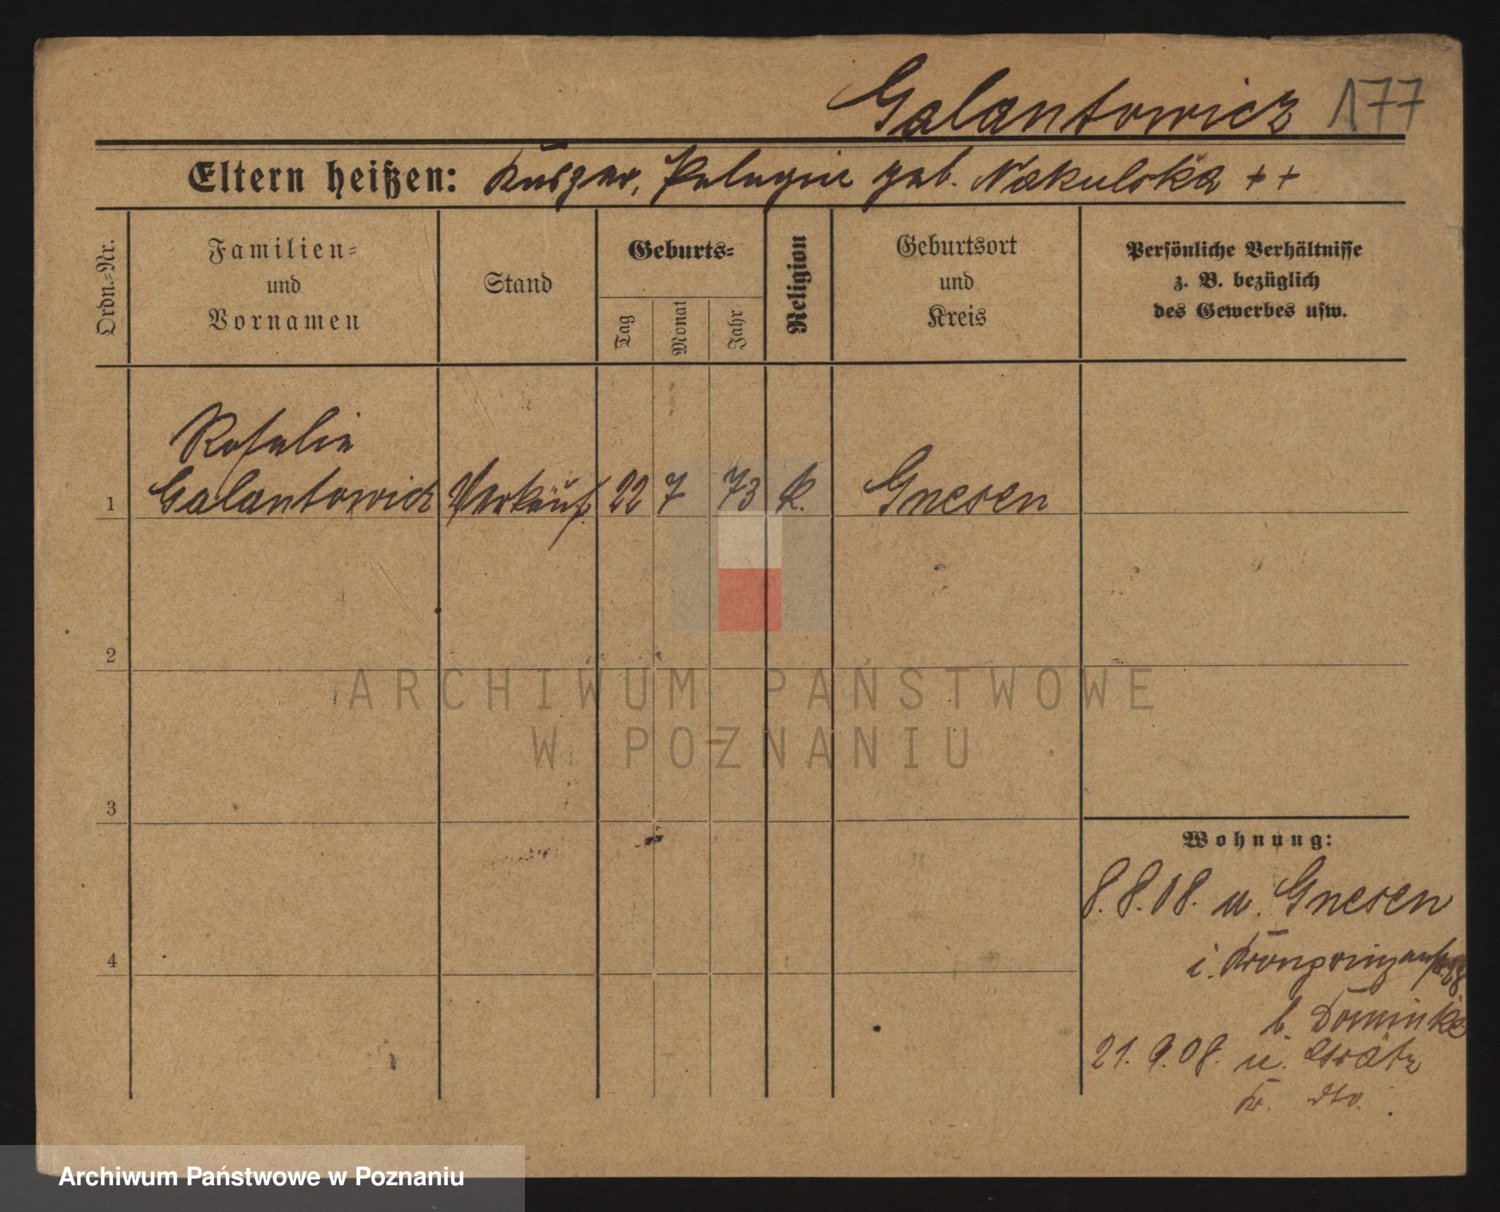 Galantowicz 177
Eltern heißen: Kasper, Pelagia geb. Nakulska ++
Ordn.=Nr.
Familien=
und
Vornamen
Stand
Geburts=
Tag
Monat
Jahr
Religion
Geburtsort
und
Kreis
Persönliche Verhältnisse
z. B. bezüglich
des Gewerbes usw.
Rosalie
1 Galantowicz Verkäuf. 22 7 73 k. Gnesen
2
ARCHIWUM PAŃSTWOWE
W POZNANIU
3
Wohnung:
8.8.08. u. Gnesen
4
i. Kronprinzenstr.
b. Dominke
21.9.08. u. Grätz
Kr. dto.
Archiwum Państwowe w Poznaniu